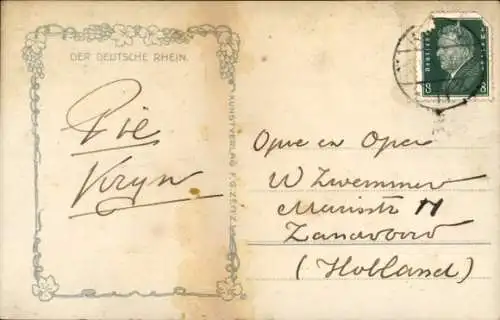 DER DEUTSCHE RHEIN.
Pie
Kryn
KUNSTVERLAG F.G. ZEITZ
Deutsches
8 8
Opoe en Opa
W Zwemmer
Marisstr 11
Zandvoord
(Holland)